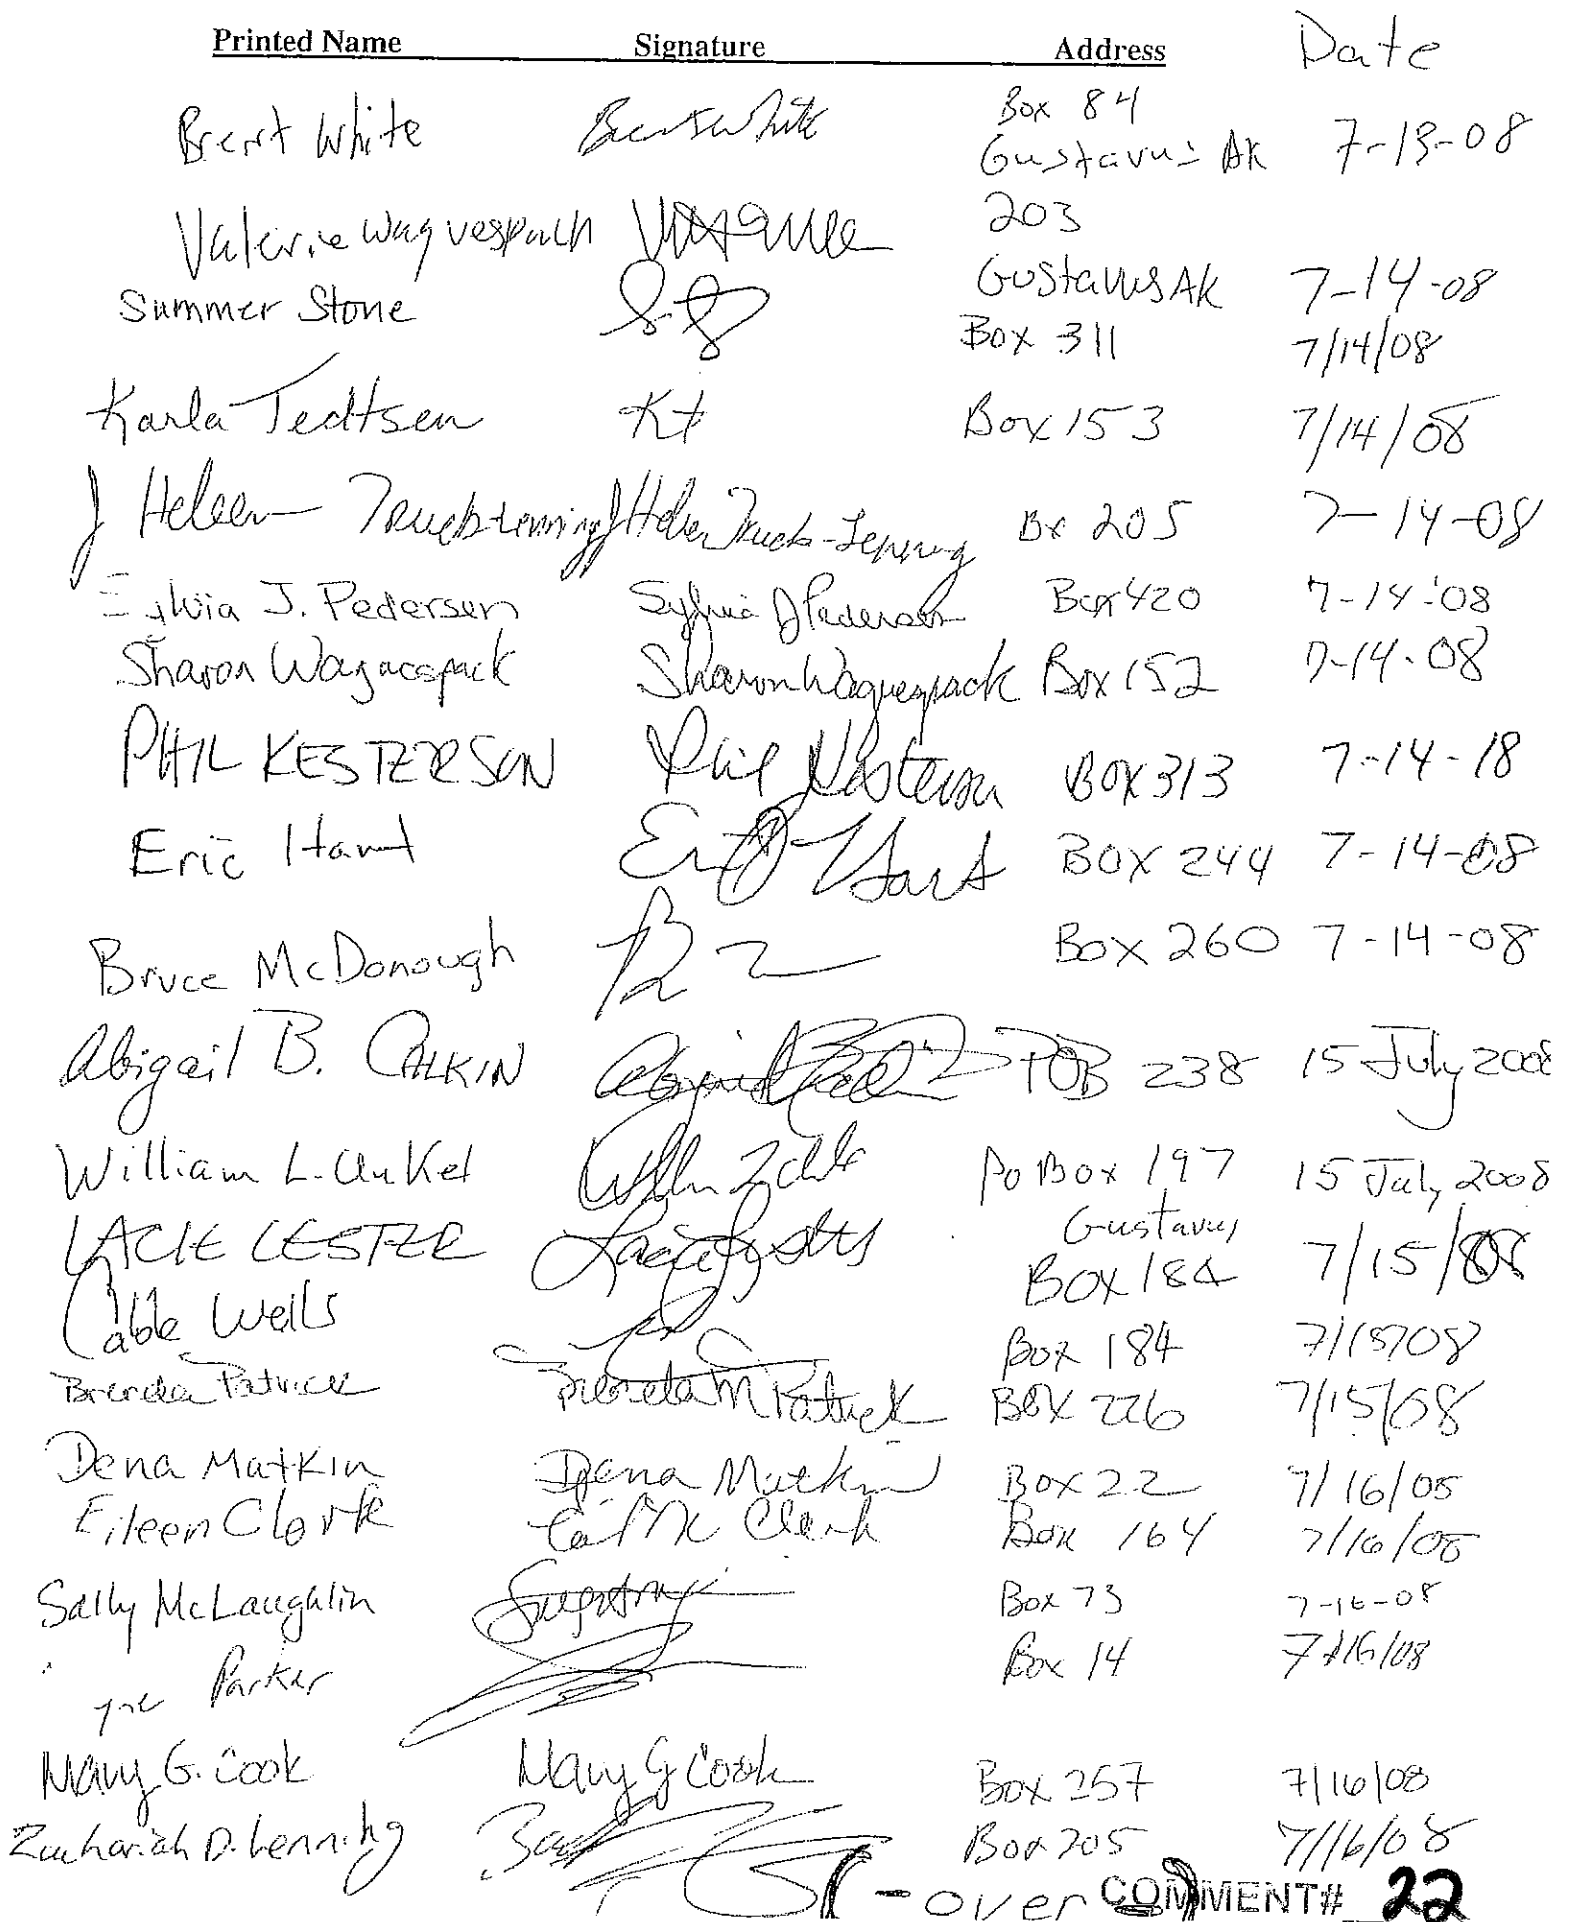 Printed Name Signature Address Date
Brent White Brent White Box 84
Gustavus AK 7-13-08
Valerie Waguespack 203
Gustavus AK 7-14-08
Summer Stone Box 311 7/14/08
Karla Tedtsen KT Box 153 7/14/08
J Helen Trucks-Lenning J Helen Trucks-Lenning Bx 205 7-14-08
J. Pedersen Sylvia J Pedersen Box 420 7-14-'08
Sharon Waguespack Sharon Waguespack Box 152 7-14-08
PHIL KESTERSON Phil Kesterson BOX 313 7-14-18
Eric Hart Eric Hart BOX 244 7-14-08
Bruce McDonough Box 260 7-14-08
Abigail B. CALKIN POB 238 15 July 2008
William L. Unkel PO Box 197
Gustavus 15 July 2008
LACIE LESTER BOX 184 7/15/08
Cable Wells Box 184 7/15/08
Brenda Patrick Brenda M Patrick BOX 226 7/15/08
Dena Matkin Dena Matkin Box 22 7/16/08
Eileen Clark Clark Box 164 7/16/08
Sally McLaughlin Box 73 7-16-08
Parker Box 14 7/16/08
Mary G. Cook Mary G Cook Box 257 7/16/08
Zachariah D. Lenning Box 205 7/16/08
- over COMMENT# 22